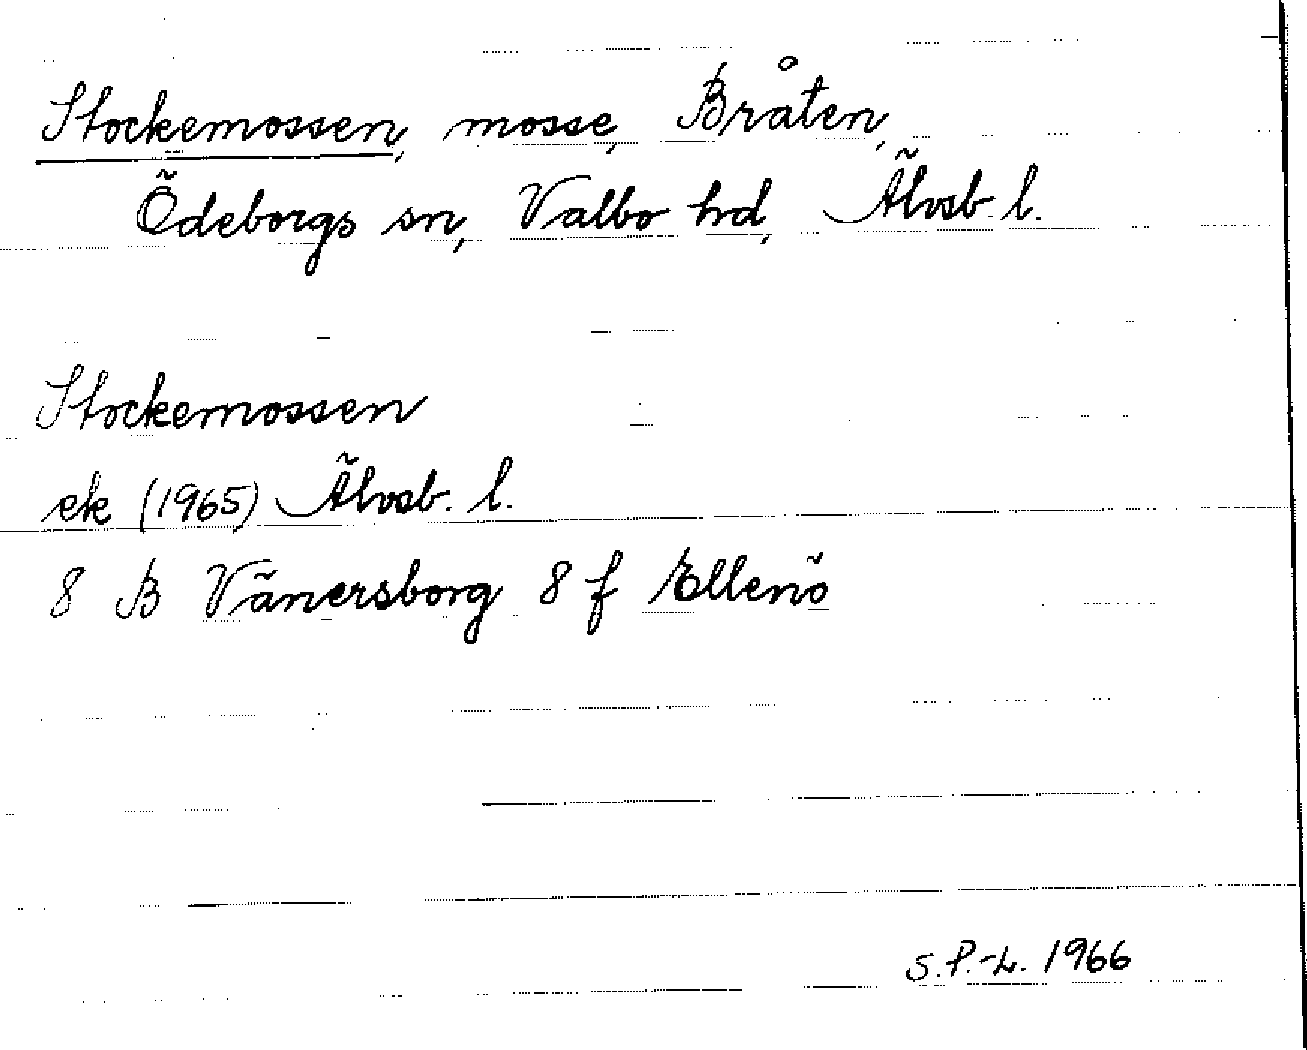 Stockemossen, mosse, Bråten,
Ödeborgs sn, Valbo hd, Älvsb. l.
Stockemossen
ek (1965) Älvsb. l.
8 B Vänersborg 8 f Ellenö
S.P.-L. 1966